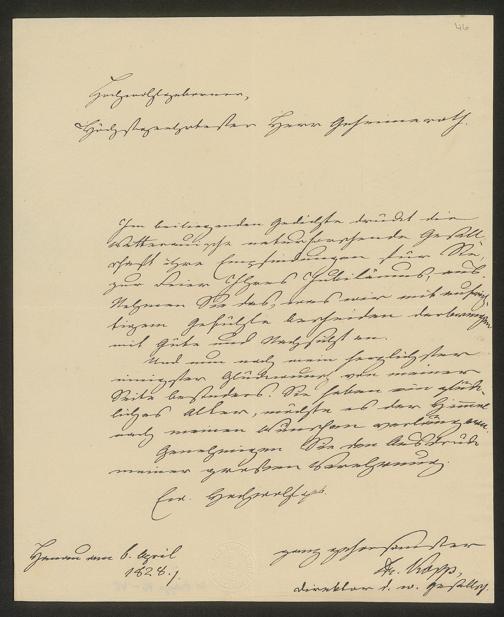 46
Hochwohlgeborner,
Höchstzuverehrender Herr Geheimerath.
Im beiliegenden Gedichte drückt die
Wetterauische naturforschende Gesell-
schaft ihre Empfindungen für Sie,
zur Feier Ihres Jubiläums, aus.
Nehmen Sie das, was wir mit aufrich-
tigem Gefühle bescheiden darbringen
mit Güte und Nachsicht an.
Und nun noch mein herzlichster
innigster Glückwunsch von meiner
Seite besonders. Sie haben ein glück-
liches Alter, möchte es der Himmel
nach meinen Wünschen verlängern.
Genehmigen Sie den Ausdruck
meiner grossen Verehrung.
Ew. Hochwohlgeb.
Hanau am 6. April
1828.
ganz gehorsamster
Dr. Kopp,
Direktor d. w. Gesellsch.